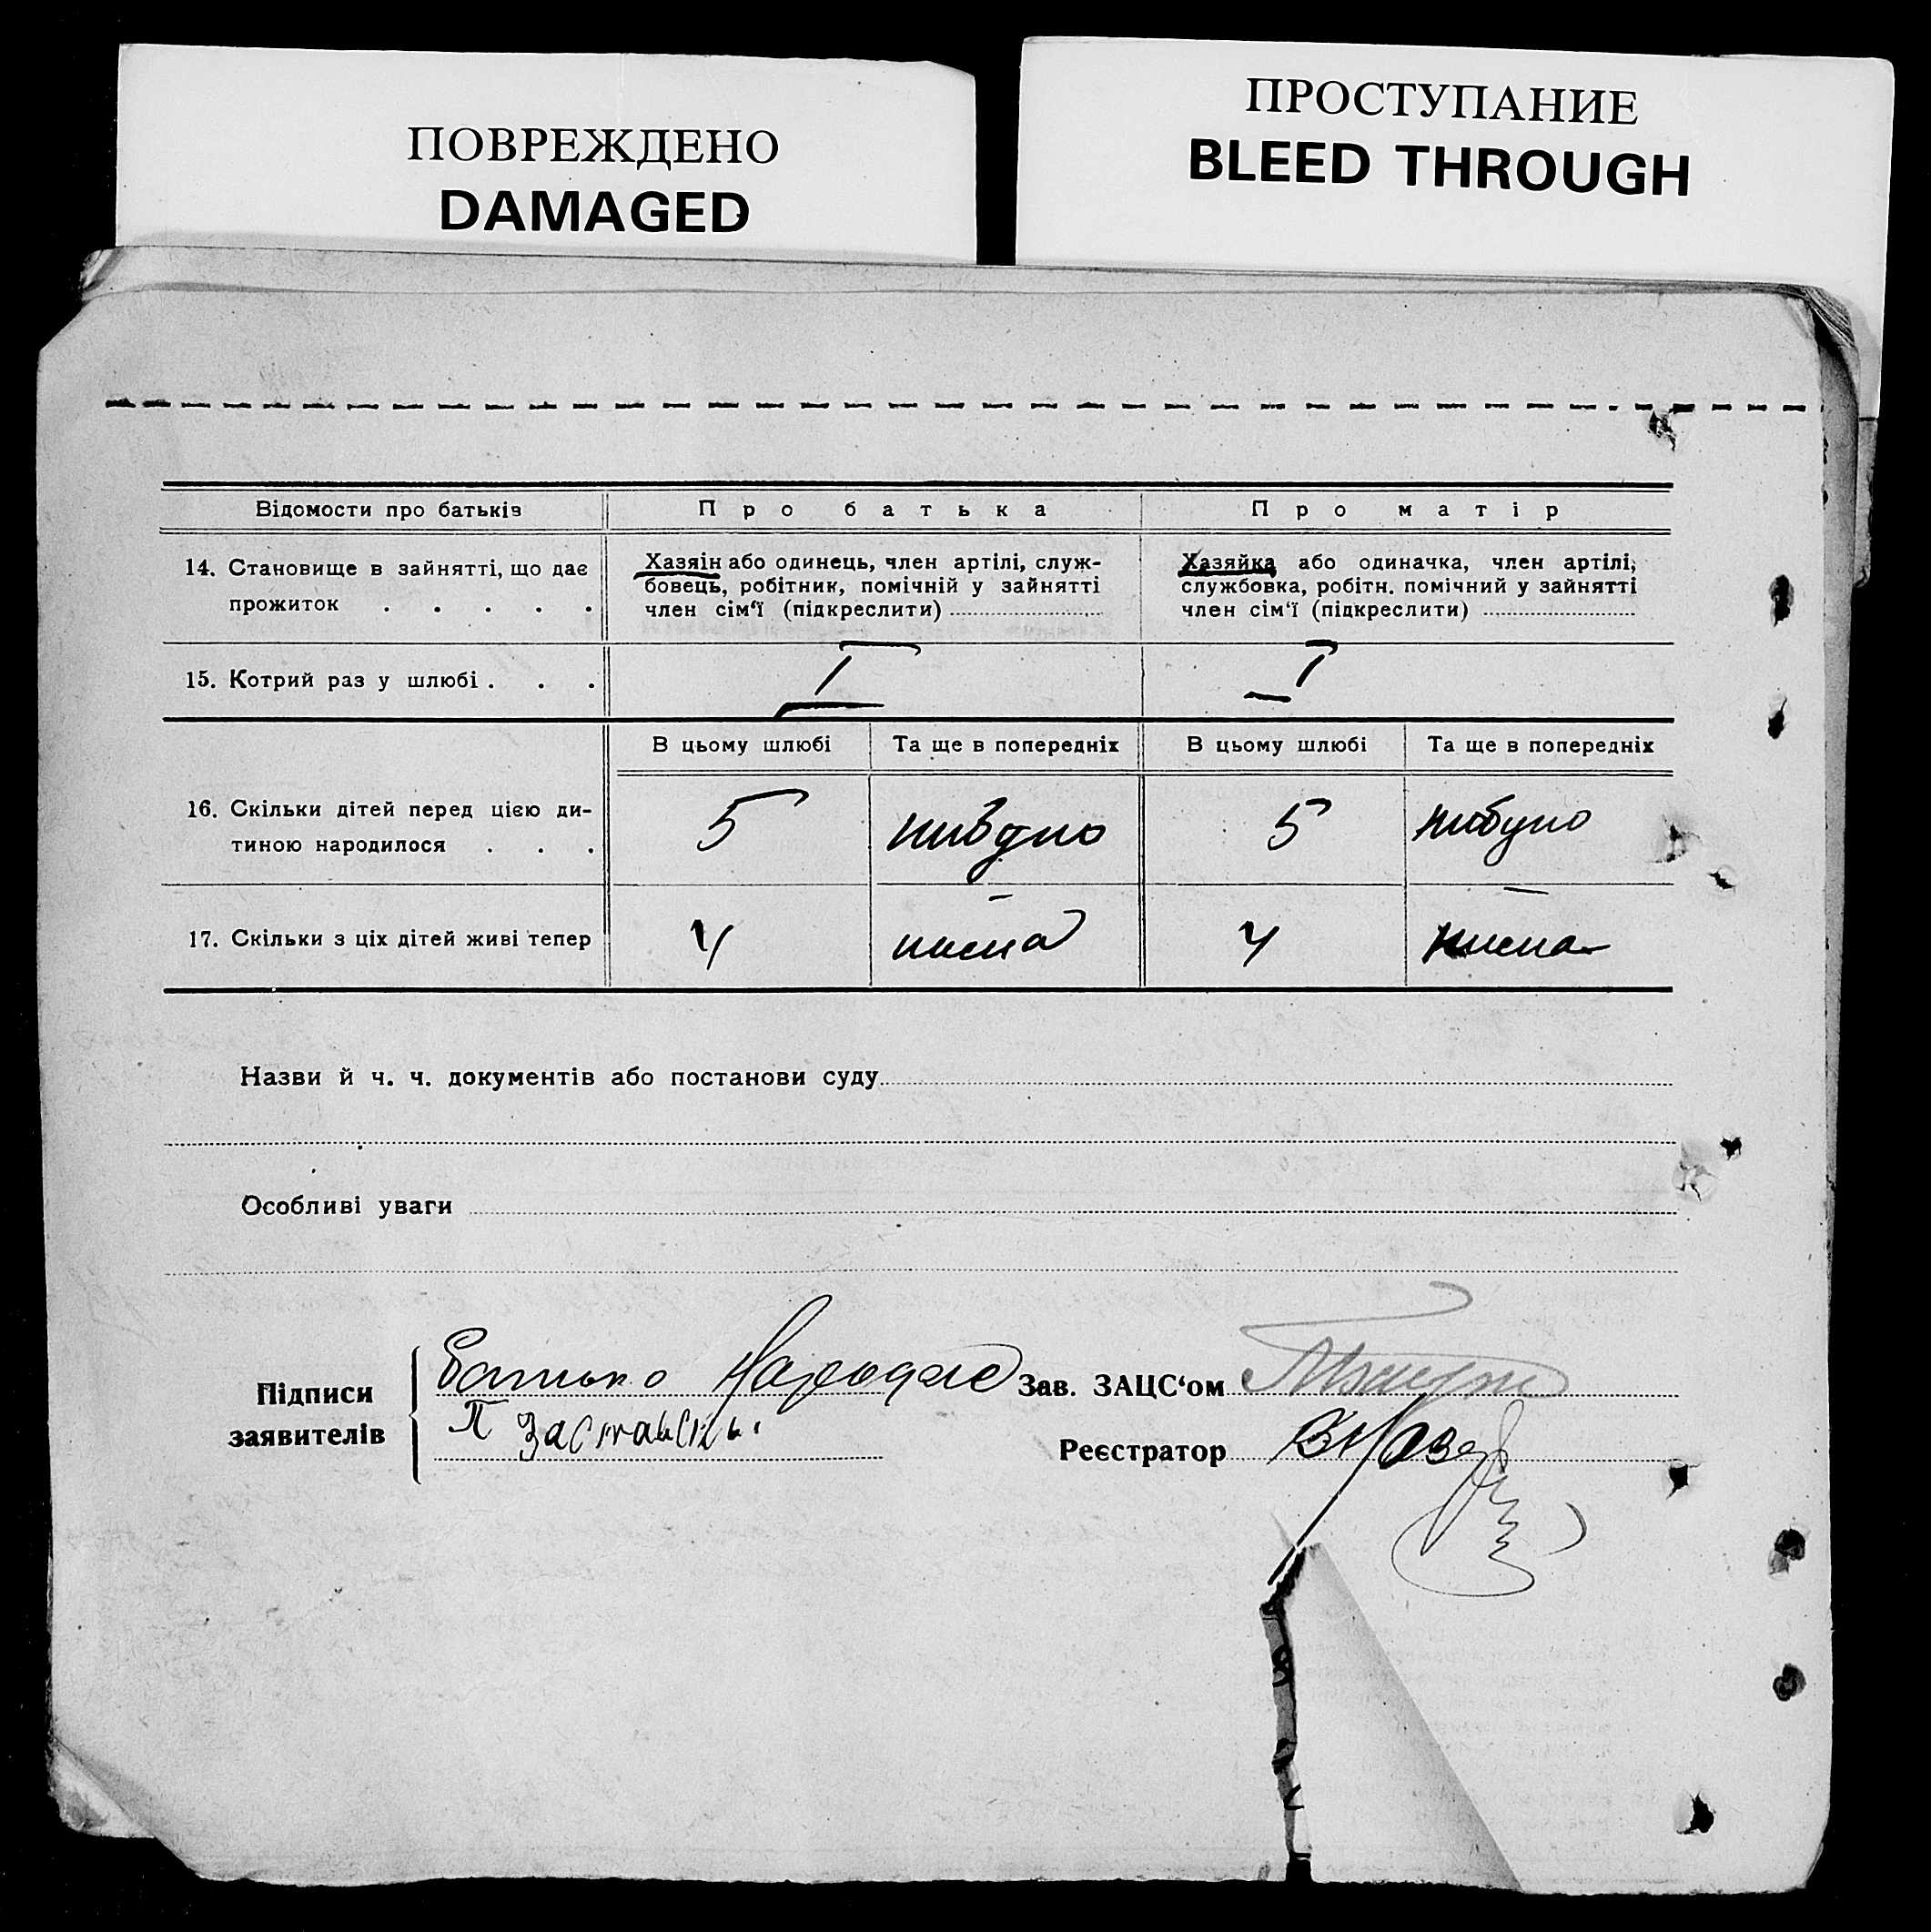 ПОВРЕЖДЕНО
DAMAGED
ПРОСТУПАНИЕ
BLEED THROUGH
Відомости про батьків
Про батька
Про матір
14. Становище в зайнятті, що дає
прожиток . . . . .
Хазяін або одинець, член артілі, служ-
бовець, робітник, помічній у зайнятті
член сім‘ї (підкреслити)
Хазяйка або одиначка, член артілі,
службовка, робітн. помічний у зайнятті
член сім‘ї (підкреслити)
15. Котрий раз у шлюбі . . .
I
I
В цьому шлюбі
Та ще в попередніх
В цьому шлюбі
Та ще в попередніх
16. Скільки дітей перед цією ди-
тиною народилося . . .
5
5
17. Скільки з ціх дітей живі тепер
4
4
Назви й ч. ч. документів або постанови суду
Особливі уваги
Підписи
заявителів
Батько
Зав. ЗАЦС‘ом
Реєстратор